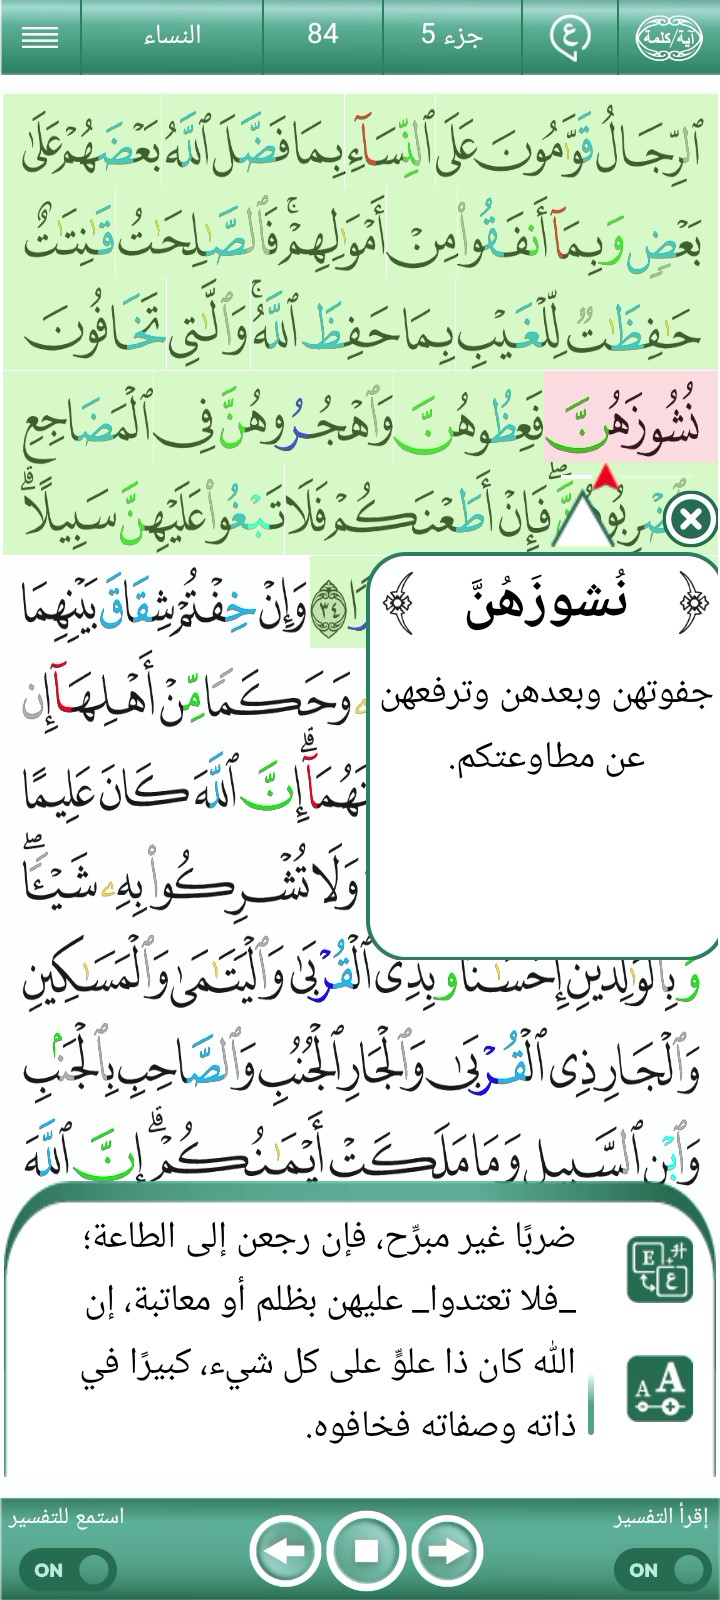 آية/كلمة
ع
جزء 5
84
النساء
ٱلرِّجَالُ قَوَّٰمُونَ عَلَى ٱلنِّسَآءِ بِمَا فَضَّلَ ٱللَّهُ بَعۡضَهُمۡ عَلَىٰ
بَعۡضٖ وَبِمَآ أَنفَقُواْ مِنۡ أَمۡوَٰلِهِمۡۚ فَٱلصَّٰلِحَٰتُ قَٰنِتَٰتٌ
حَٰفِظَٰتٞ لِّلۡغَيۡبِ بِمَا حَفِظَ ٱللَّهُۚ وَٱلَّٰتِي تَخَافُونَ
نُشُوزَهُنَّ فَعِظُوهُنَّ وَٱهۡجُرُوهُنَّ فِي ٱلۡمَضَاجِعِ
فَإِنۡ أَطَعۡنَكُمۡ فَلَا تَبۡغُواْ عَلَيۡهِنَّ سَبِيلًاۗ
٣٤ وَإِنۡ خِفۡتُمۡ شِقَاقَ بَيۡنِهِمَا
وَحَكَمٗا مِّنۡ أَهۡلِهَآ إِن
إِنَّ ٱللَّهَ كَانَ عَلِيمًا
وَلَا تُشۡرِكُواْ بِهِۦ شَيۡـٔٗاۖ
﴿ نُشوزَهُنَّ ﴾
جفوتهن وبعدهن وترفعهن
عن مطاوعتكم.
وَبِٱلۡوَٰلِدَيۡنِ إِحۡسَٰنٗا وَبِذِي ٱلۡقُرۡبَىٰ وَٱلۡيَتَٰمَىٰ وَٱلۡمَسَٰكِينِ
وَٱلۡجَارِ ذِي ٱلۡقُرۡبَىٰ وَٱلۡجَارِ ٱلۡجُنُبِ وَٱلصَّاحِبِ بِٱلۡجَنۢبِ
وَٱبۡنِ ٱلسَّبِيلِ وَمَا مَلَكَتۡ أَيۡمَٰنُكُمۡۗ إِنَّ ٱللَّهَ
ضربًا غير مبرِّح، فإن رجعن إلى الطاعة؛
_فلا تعتدوا_ عليهن بظلم أو معاتبة، إن
الله كان ذا علوٍّ على كل شيء، كبيرًا في
ذاته وصفاته فخافوه.
إقرأ التفسير
استمع للتفسير
ON
ON